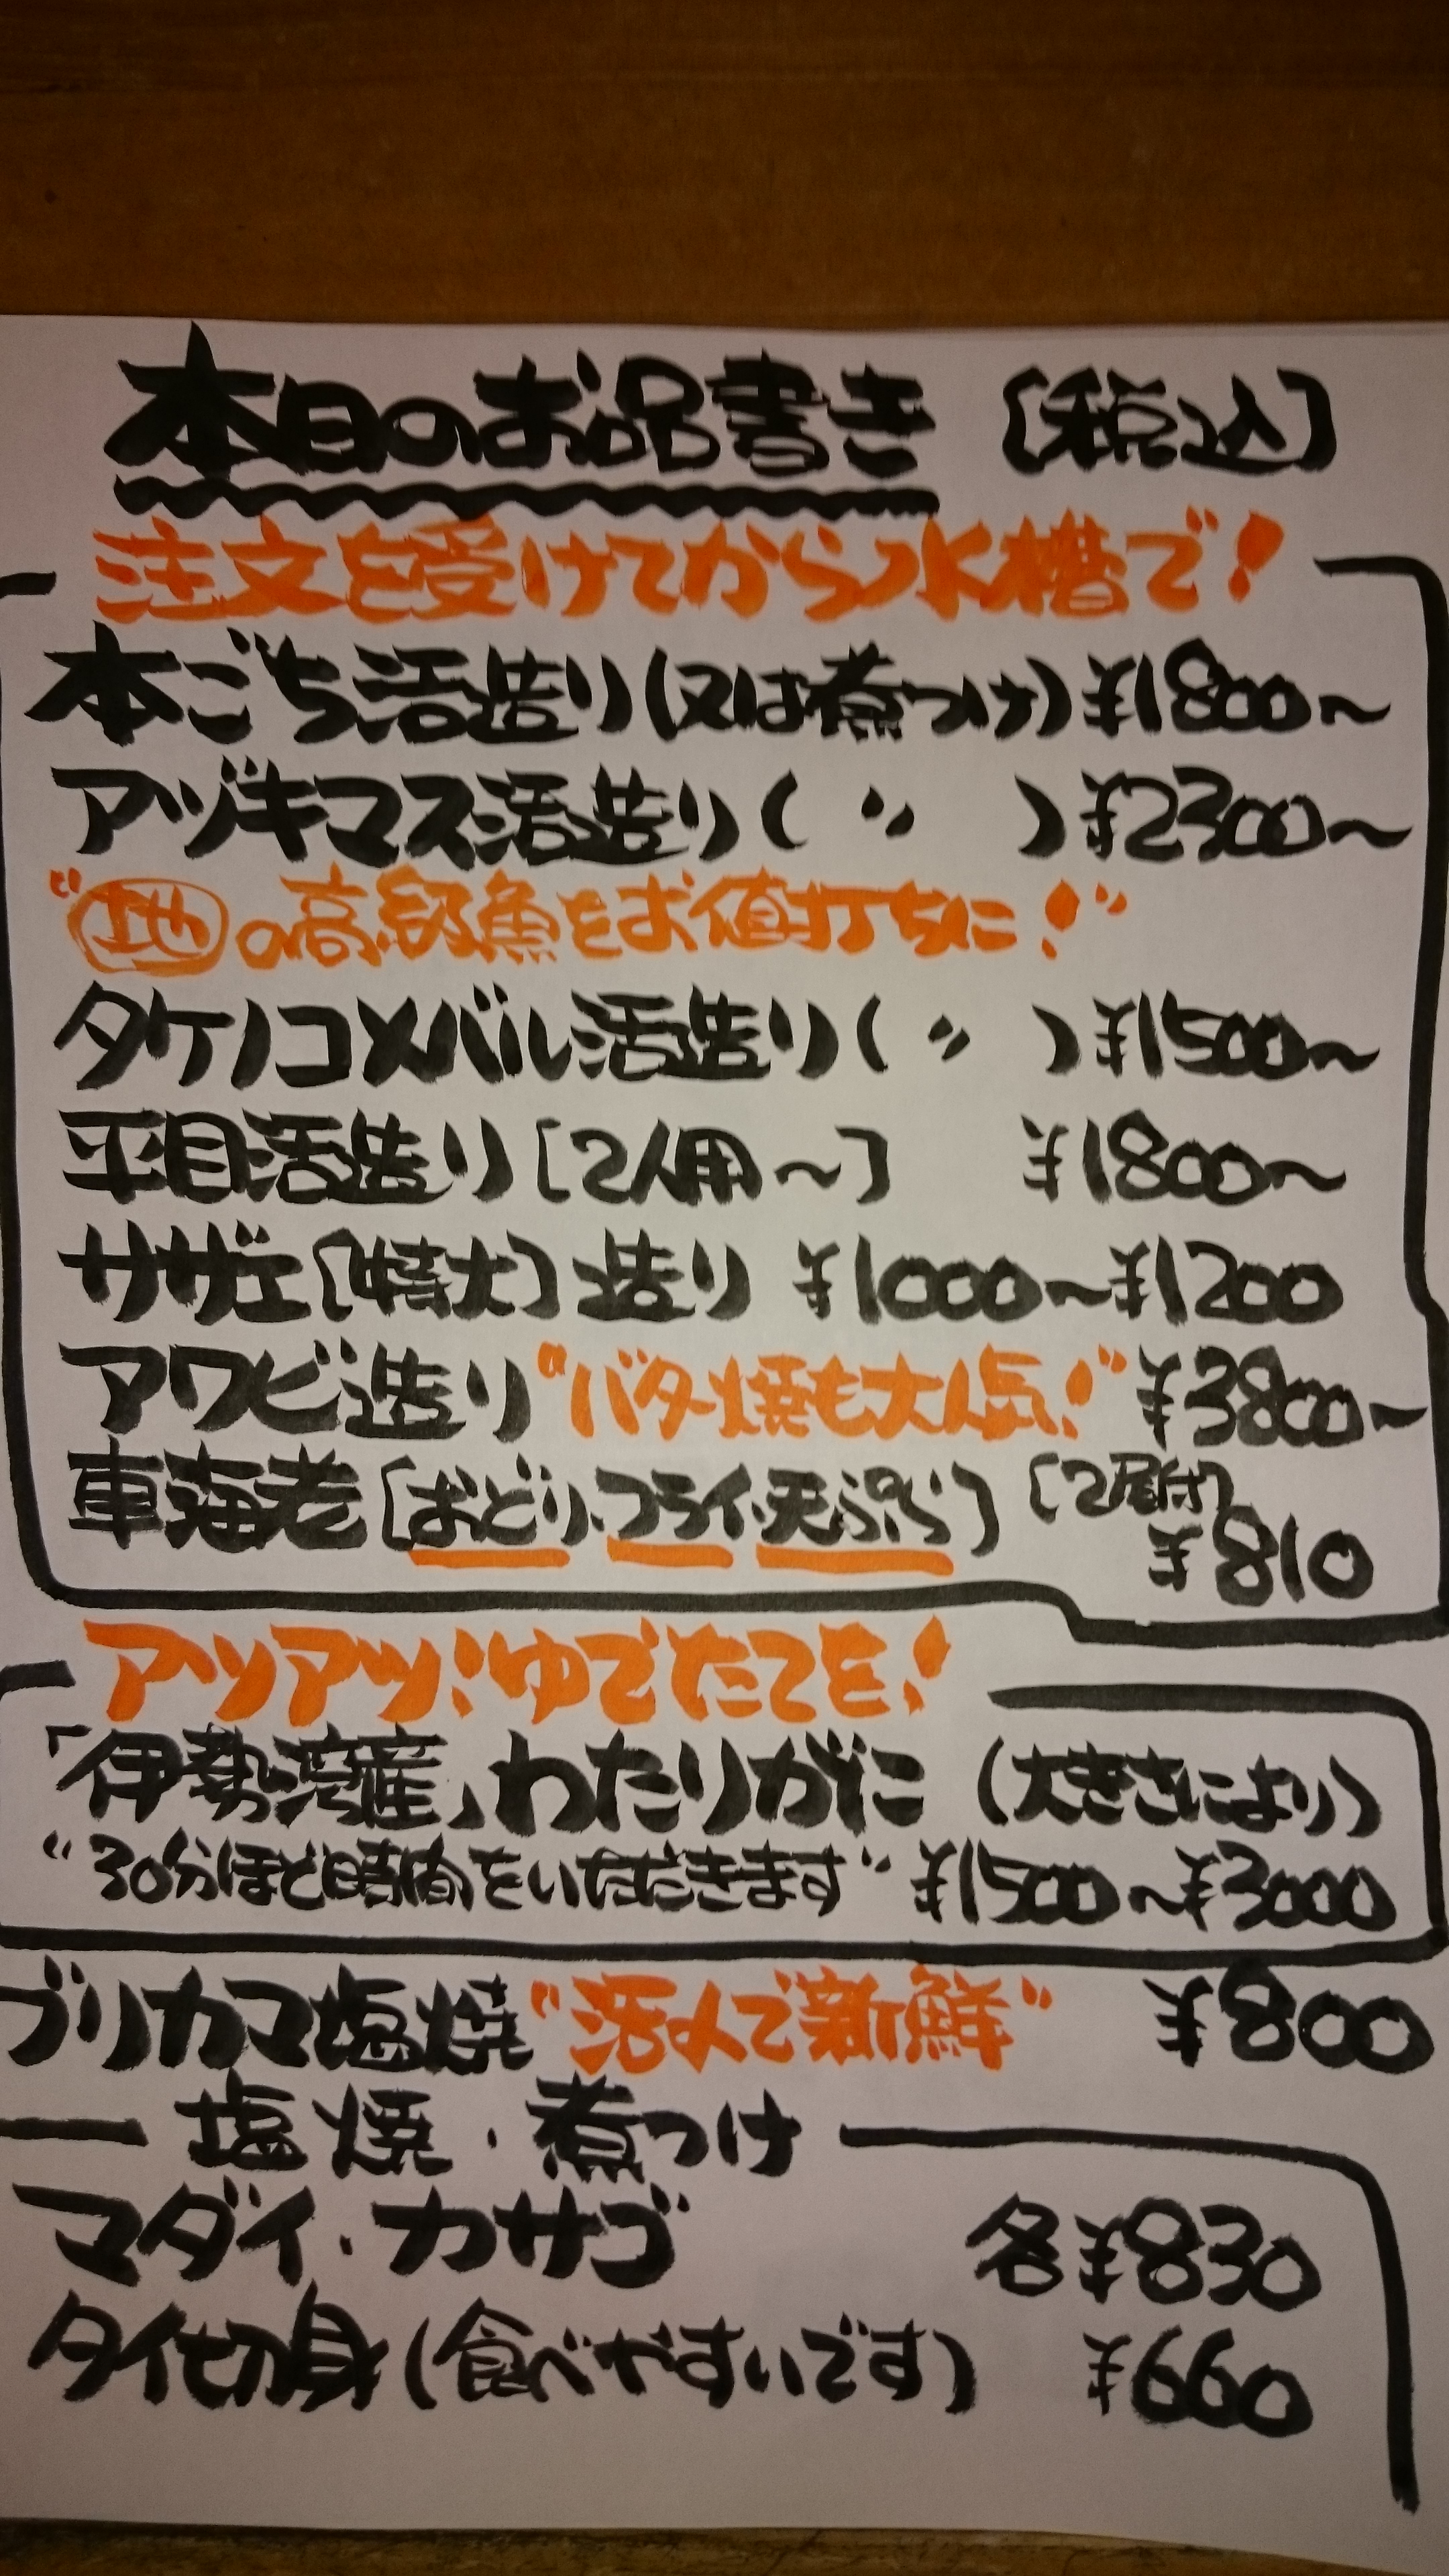 本日のお品書き [税込]
注文を受けてから水槽で!
本ごち活造り(又は煮つけ) ¥1800〜
アヅキマス活造り( 〃 ) ¥2300〜
"地の高級魚をお値打ちに!"
タケノコメバル活造り( 〃 ) ¥1500〜
平目活造り[2人用〜] ¥1800〜
サザエ[特大]造り ¥1000〜¥1200
アワビ造り"バター焼も大人気!" ¥3800〜
車海老[おどり、フライ、天ぷら] [2尾付] ¥810
アツアツ!ゆでたてを!
「伊勢湾産」わたりがに (大きさにより)
"30分ほど時間をいただきます" ¥1500〜¥3000
ブリカマ塩焼"活〆で新鮮" ¥800
塩焼・煮つけ
マダイ・カサゴ 各¥830
タイ切身(食べやすいです) ¥660